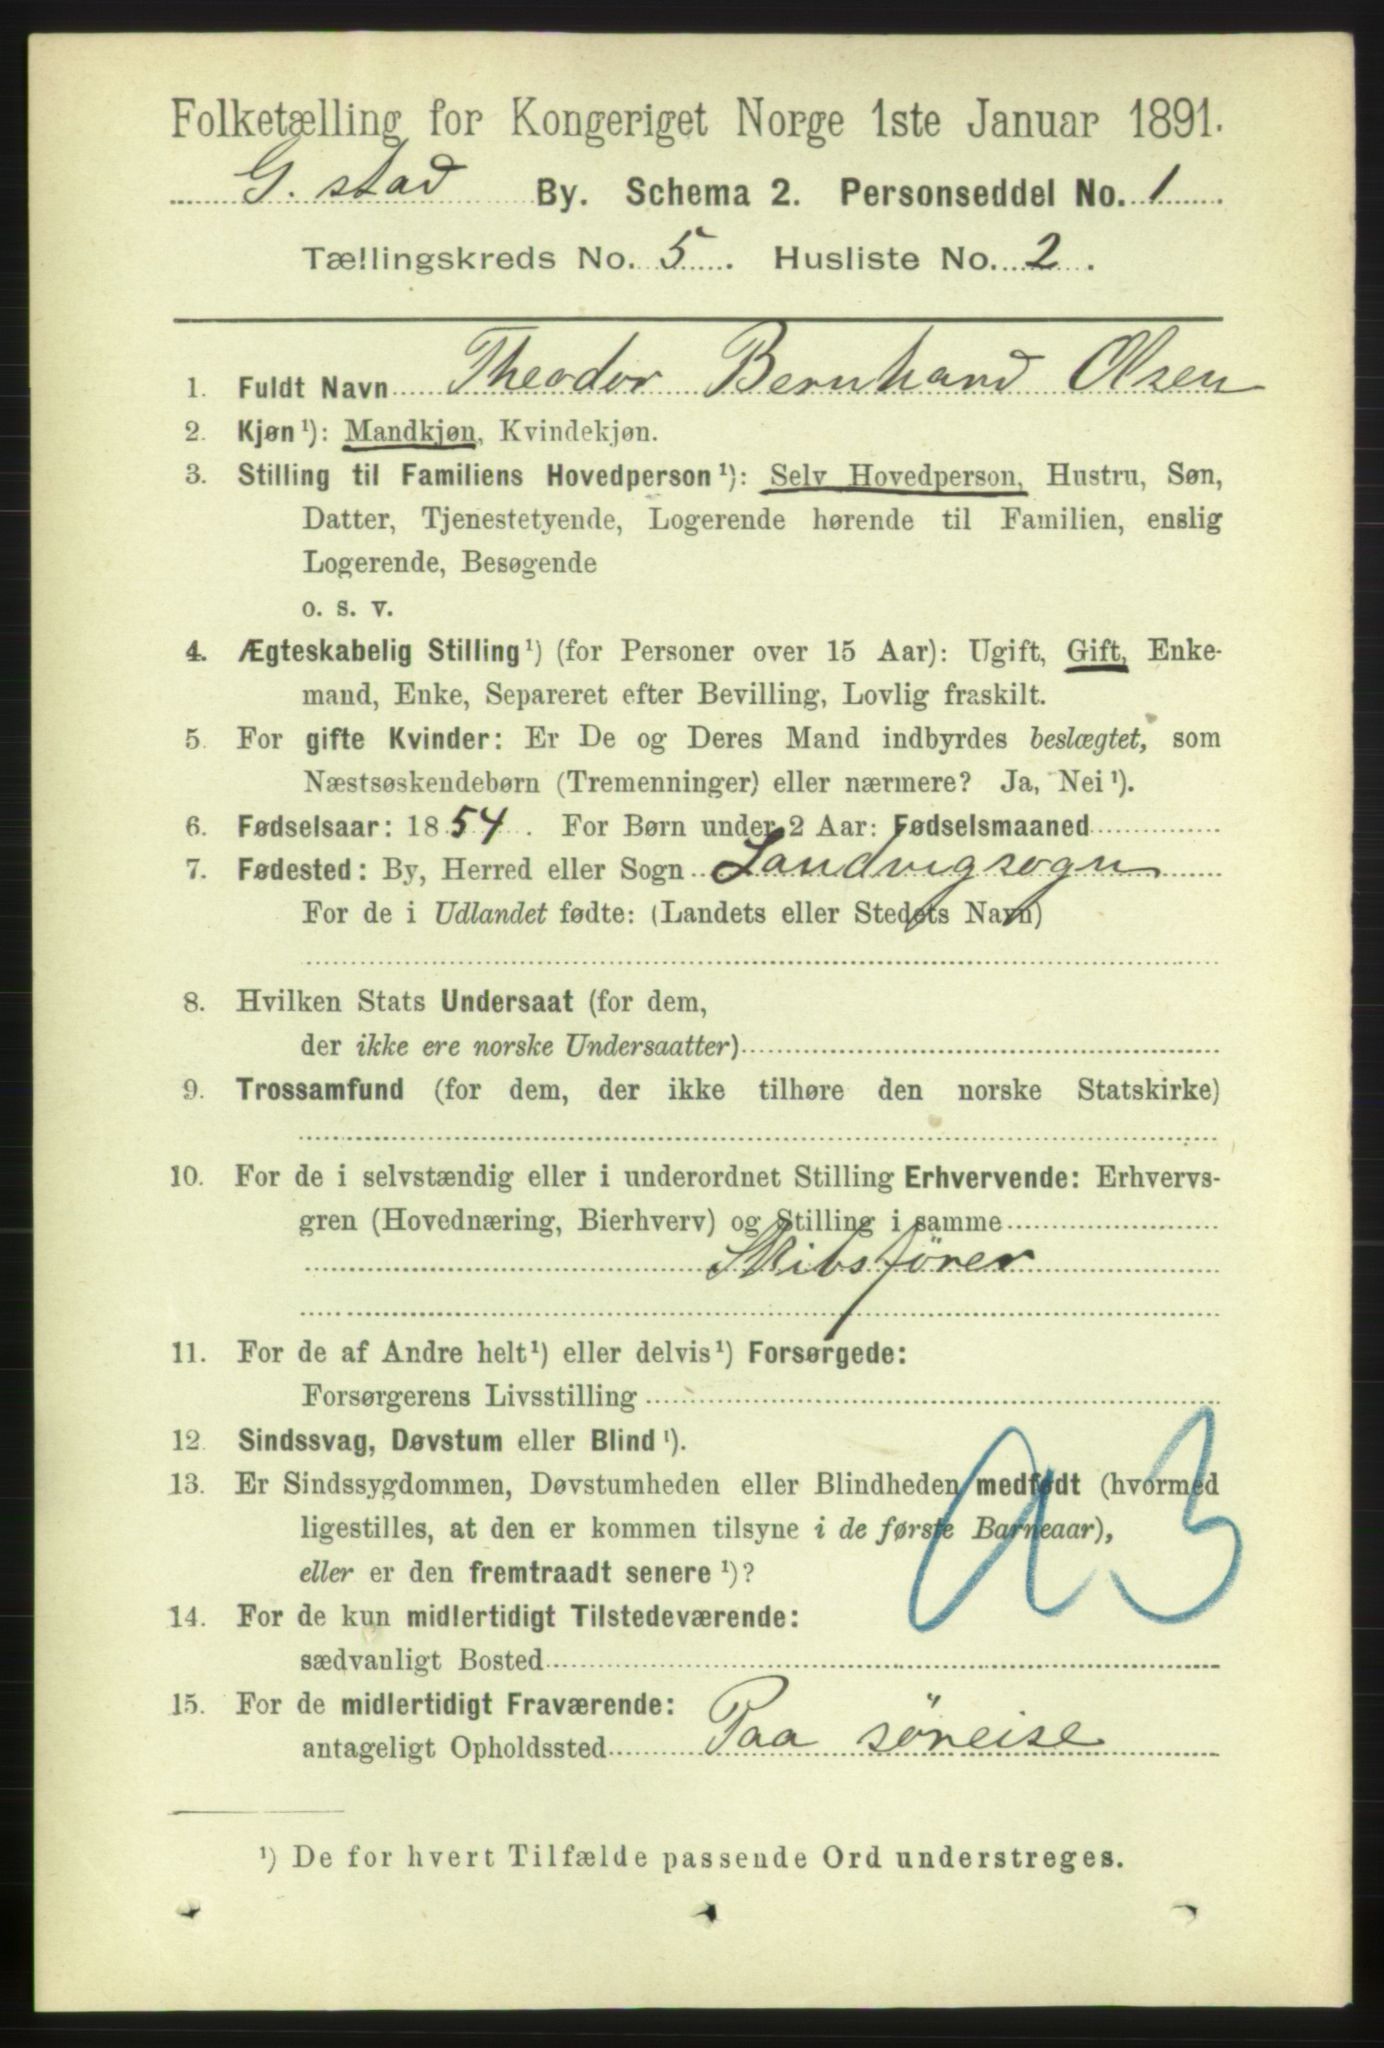 Folketælling for Kongeriget Norge 1ste Januar 1891.
G.stad By. Schema 2. Personseddel No. 1
Tællingskreds No. 5. Husliste No. 2.
1. Fuldt Navn Theodor Bernhard Olsen
2. Kjøn ¹): Mandkjøn, Kvindekjøn.
3. Stilling til Familiens Hovedperson ¹): Selv Hovedperson, Hustru, Søn,
Datter, Tjenestetyende, Logerende hørende til Familien, enslig
Logerende, Besøgende
o. s. v.
4. Ægteskabelig Stilling ¹) (for Personer over 15 Aar): Ugift, Gift, Enke-
mand, Enke, Separeret efter Bevilling, Lovlig fraskilt.
5. For gifte Kvinder: Er De og Deres Mand indbyrdes beslægtet, som
Næstsøskendebørn (Tremenninger) eller nærmere? Ja, Nei ¹).
6. Fødselsaar: 1854. For Børn under 2 Aar: Fødselsmaaned
7. Fødested: By, Herred eller Sogn Landvigsogn
For de i Udlandet fødte: (Landets eller Stedets Navn)
8. Hvilken Stats Undersaat (for dem,
der ikke ere norske Undersaatter)
9. Trossamfund (for dem, der ikke tilhøre den norske Statskirke)
10. For de i selvstændig eller i underordnet Stilling Erhvervende: Erhvervs-
gren (Hovednæring, Bierhverv) og Stilling i samme
Skibsfører
11. For de af Andre helt ¹) eller delvis ¹) Forsørgede:
Forsørgerens Livsstilling
12. Sindssvag, Døvstum eller Blind ¹).
13. Er Sindssygdommen, Døvstumheden eller Blindheden medfødt (hvormed
ligestilles, at den er kommen tilsyne i de første Barneaar),
eller er den fremtraadt senere ¹)?
14. For de kun midlertidigt Tilstedeværende:
sædvanligt Bosted
15. For de midlertidigt Fraværende:
antageligt Opholdssted Paa söreise
¹) De for hvert Tilfælde passende Ord understreges.